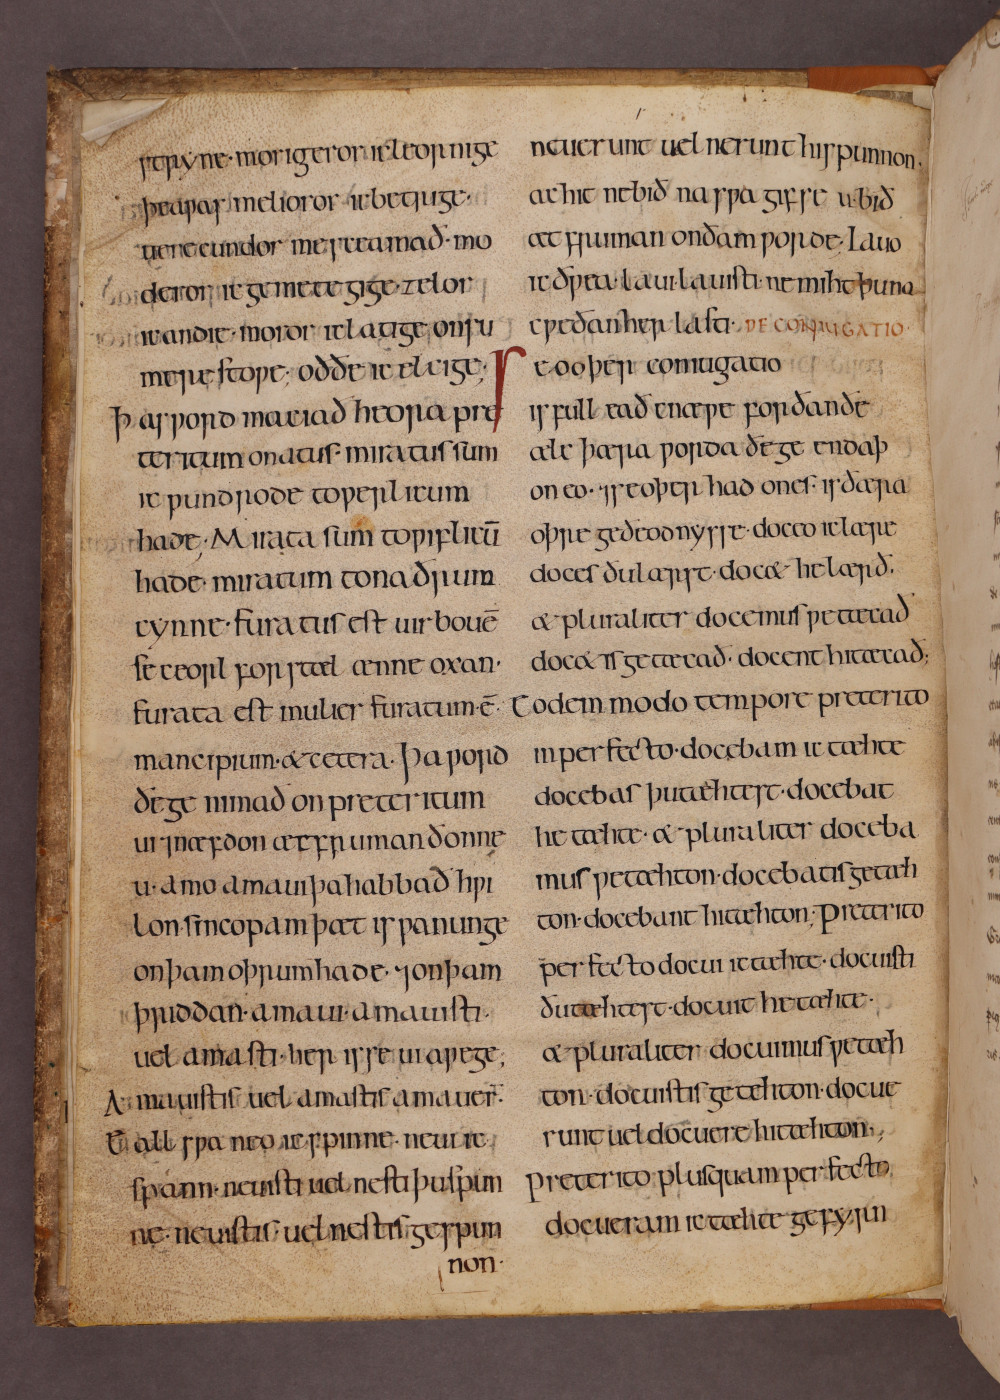 ſtrẏne· morigeror ic leornige
þeaƿas melioror ic betrige·
uerecundor me sceamað· mo
deror ic gemetegige· zelor
ic andie· moror ic latige on su
mere ſtoƿe; oððe ic elcige;
Þas ƿord maciað heora pre
teritum on atuſ· miratuſ ſum
ic ƿundrode to ƿerlicum
hade; Mirata ſum to ƿiflicū
hade· miratum to naðrum
cynne· furatuſ eſt uir bouē
ſe ceorl forstæl ænne oxan·
furata eſt mulier furatum· ē·
mancipium· & cetera. Þa ƿord
ðe ge nimað on preteritum
ui inæfdon ætfruman ðonne
u· amo amaui þa habbað hƿi
lon ſincopam þæt is ƿanunge
on þam oþrum hade· ⁊ on þam
þriddan· amaui· amauiſti·
uel amaſti· her is se ui aƿege;
Amauiſtiſ uel amaſtiſ amauer̄·
Eall sƿa neo ic sƿinne· neui ic
ſpann· neuiſti uel neſti þu ſpun
ne· neuiſtiſ· uel neſtiſ ge sƿun
non·
neuerunt uel nerunt hi sƿunnon.
ac hit ne bið na sƿa gif se u bið
æt fruman on ðam ƿorde· Lauo
ic ðƿea· laui· lauiſti· ne miht þu na
cƿeðan her laſti· DE CONIUGATIO·
Seo oþer coniugatio
is full eað cnæƿe forðan ðe
ælc þæra ƿorda ðe geendaþ
on eo· ⁊ se oþer had on eſ· is ðæra
oþre geðeodnysse· doceo ic lære
doceſ ðu lærst· doc& he lærð.
& pluraliter docemuſ ƿe tæcað
doc&iſ ge tæcað· docent hi tæcað;
Eodem modo tempore preterito
inperfecto· docebam ic tæhte
docebaſ þu tæhtest· docebat
he tæhte· & pluraliter doceba
muſ ƿe tæhton· docebatiſ ge tæh
ton· docebant hi tæhton; Preterito
perfecto docui ic tæhte· docuiſti
ðu tæhtest· docuit he tæhte·
& pluraliter docuimuſ ƿe tæh
ton· docuiſtiſ ge tæhton· docue
runt uel docuere hi tæhton·;
Preterito pluſquam perfecto
docueram ic tæhte gefyrn